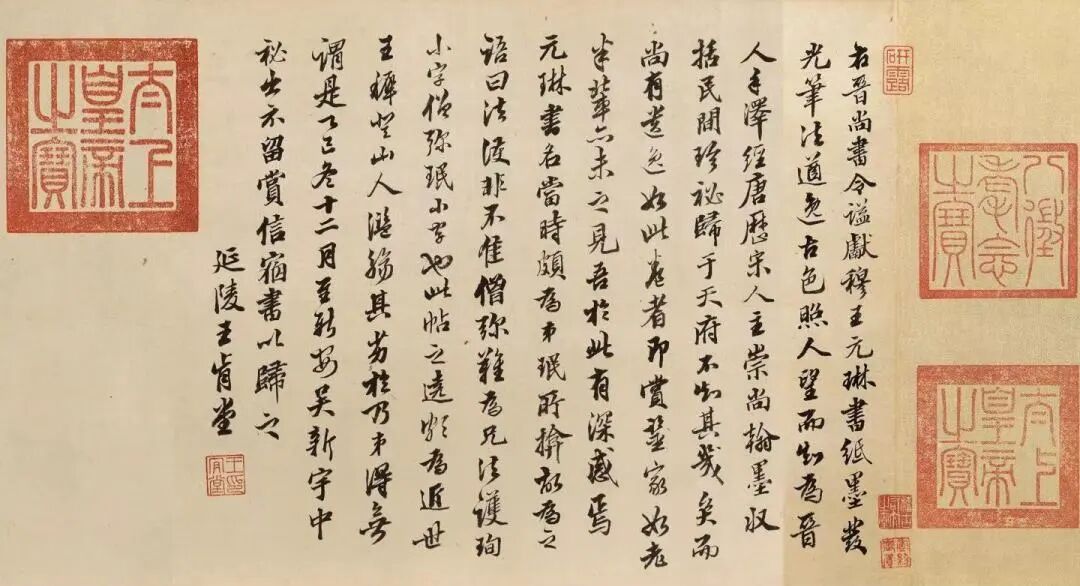 研露
八徵耄念之寶
太上皇帝之寶
右晉尚書令謚獻穆王元琳書紙墨發
光筆法遒逸古色照人望而知為晉
人手澤經唐歷宋人主崇尚翰墨收
括民間珍秘歸于天府不知其幾矣而
尚有遺逸如此卷者即賞鑒家如老
米輩亦未之見吾於此有深感焉
元琳書名當時頗為弟珉所揜故為之
語曰法護非不佳僧彌難為兄法護珣
小字僧彌珉小字也此帖之為近世
王穉登山人濫觴其劣於乃弟得無
謂是乙巳冬十二月至新安吳新宇中
秘出示留賞信宿書以歸之
延陵王肯堂
太上皇帝之寶